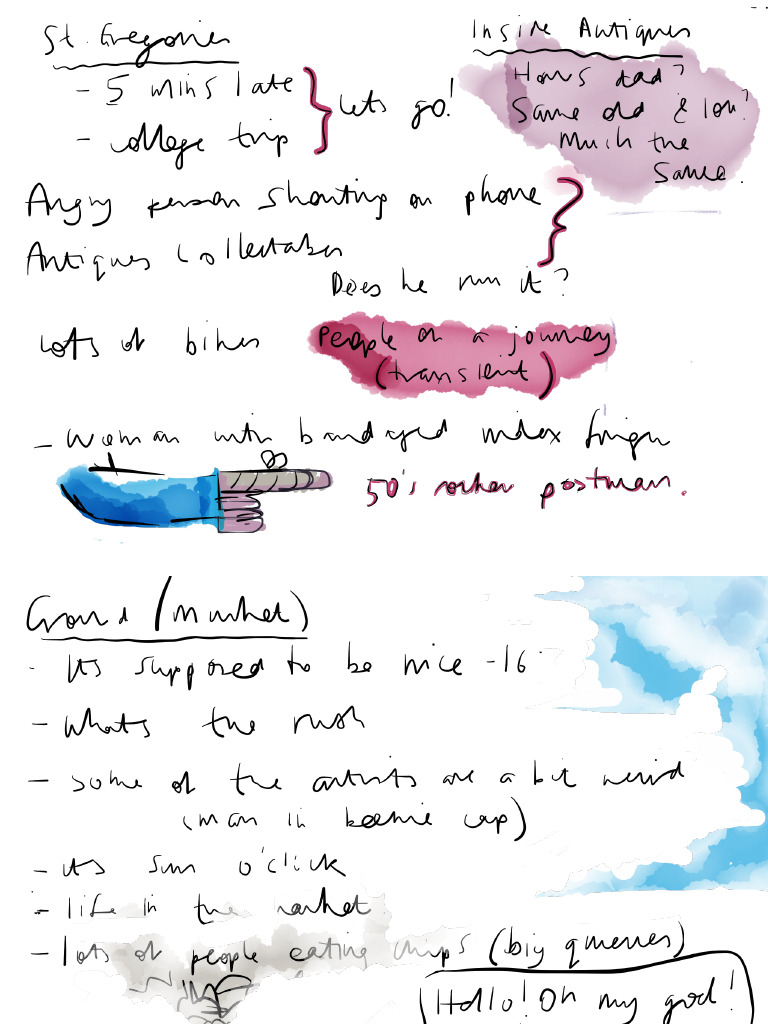 St. Gregories
- 5 mins late
- college trip
Lets go!
Inside Antiques
Hows dad?
Same old & you?
Much the
Same.
Angry person shouting on phone
Antiques Collectables
Does he run it?
Lots of bikes
People on a journey
(transient)
- Woman with bandaged index finger
50's rocker postman.
Ground (market)
- Its supposed to be nice -16
- Whats the rush
- some of the artists are a bit weird
(man in beanie cap)
- its sun o'click
- life in the market
- lots of people eating chips (big queues)
Hello! Oh my god!